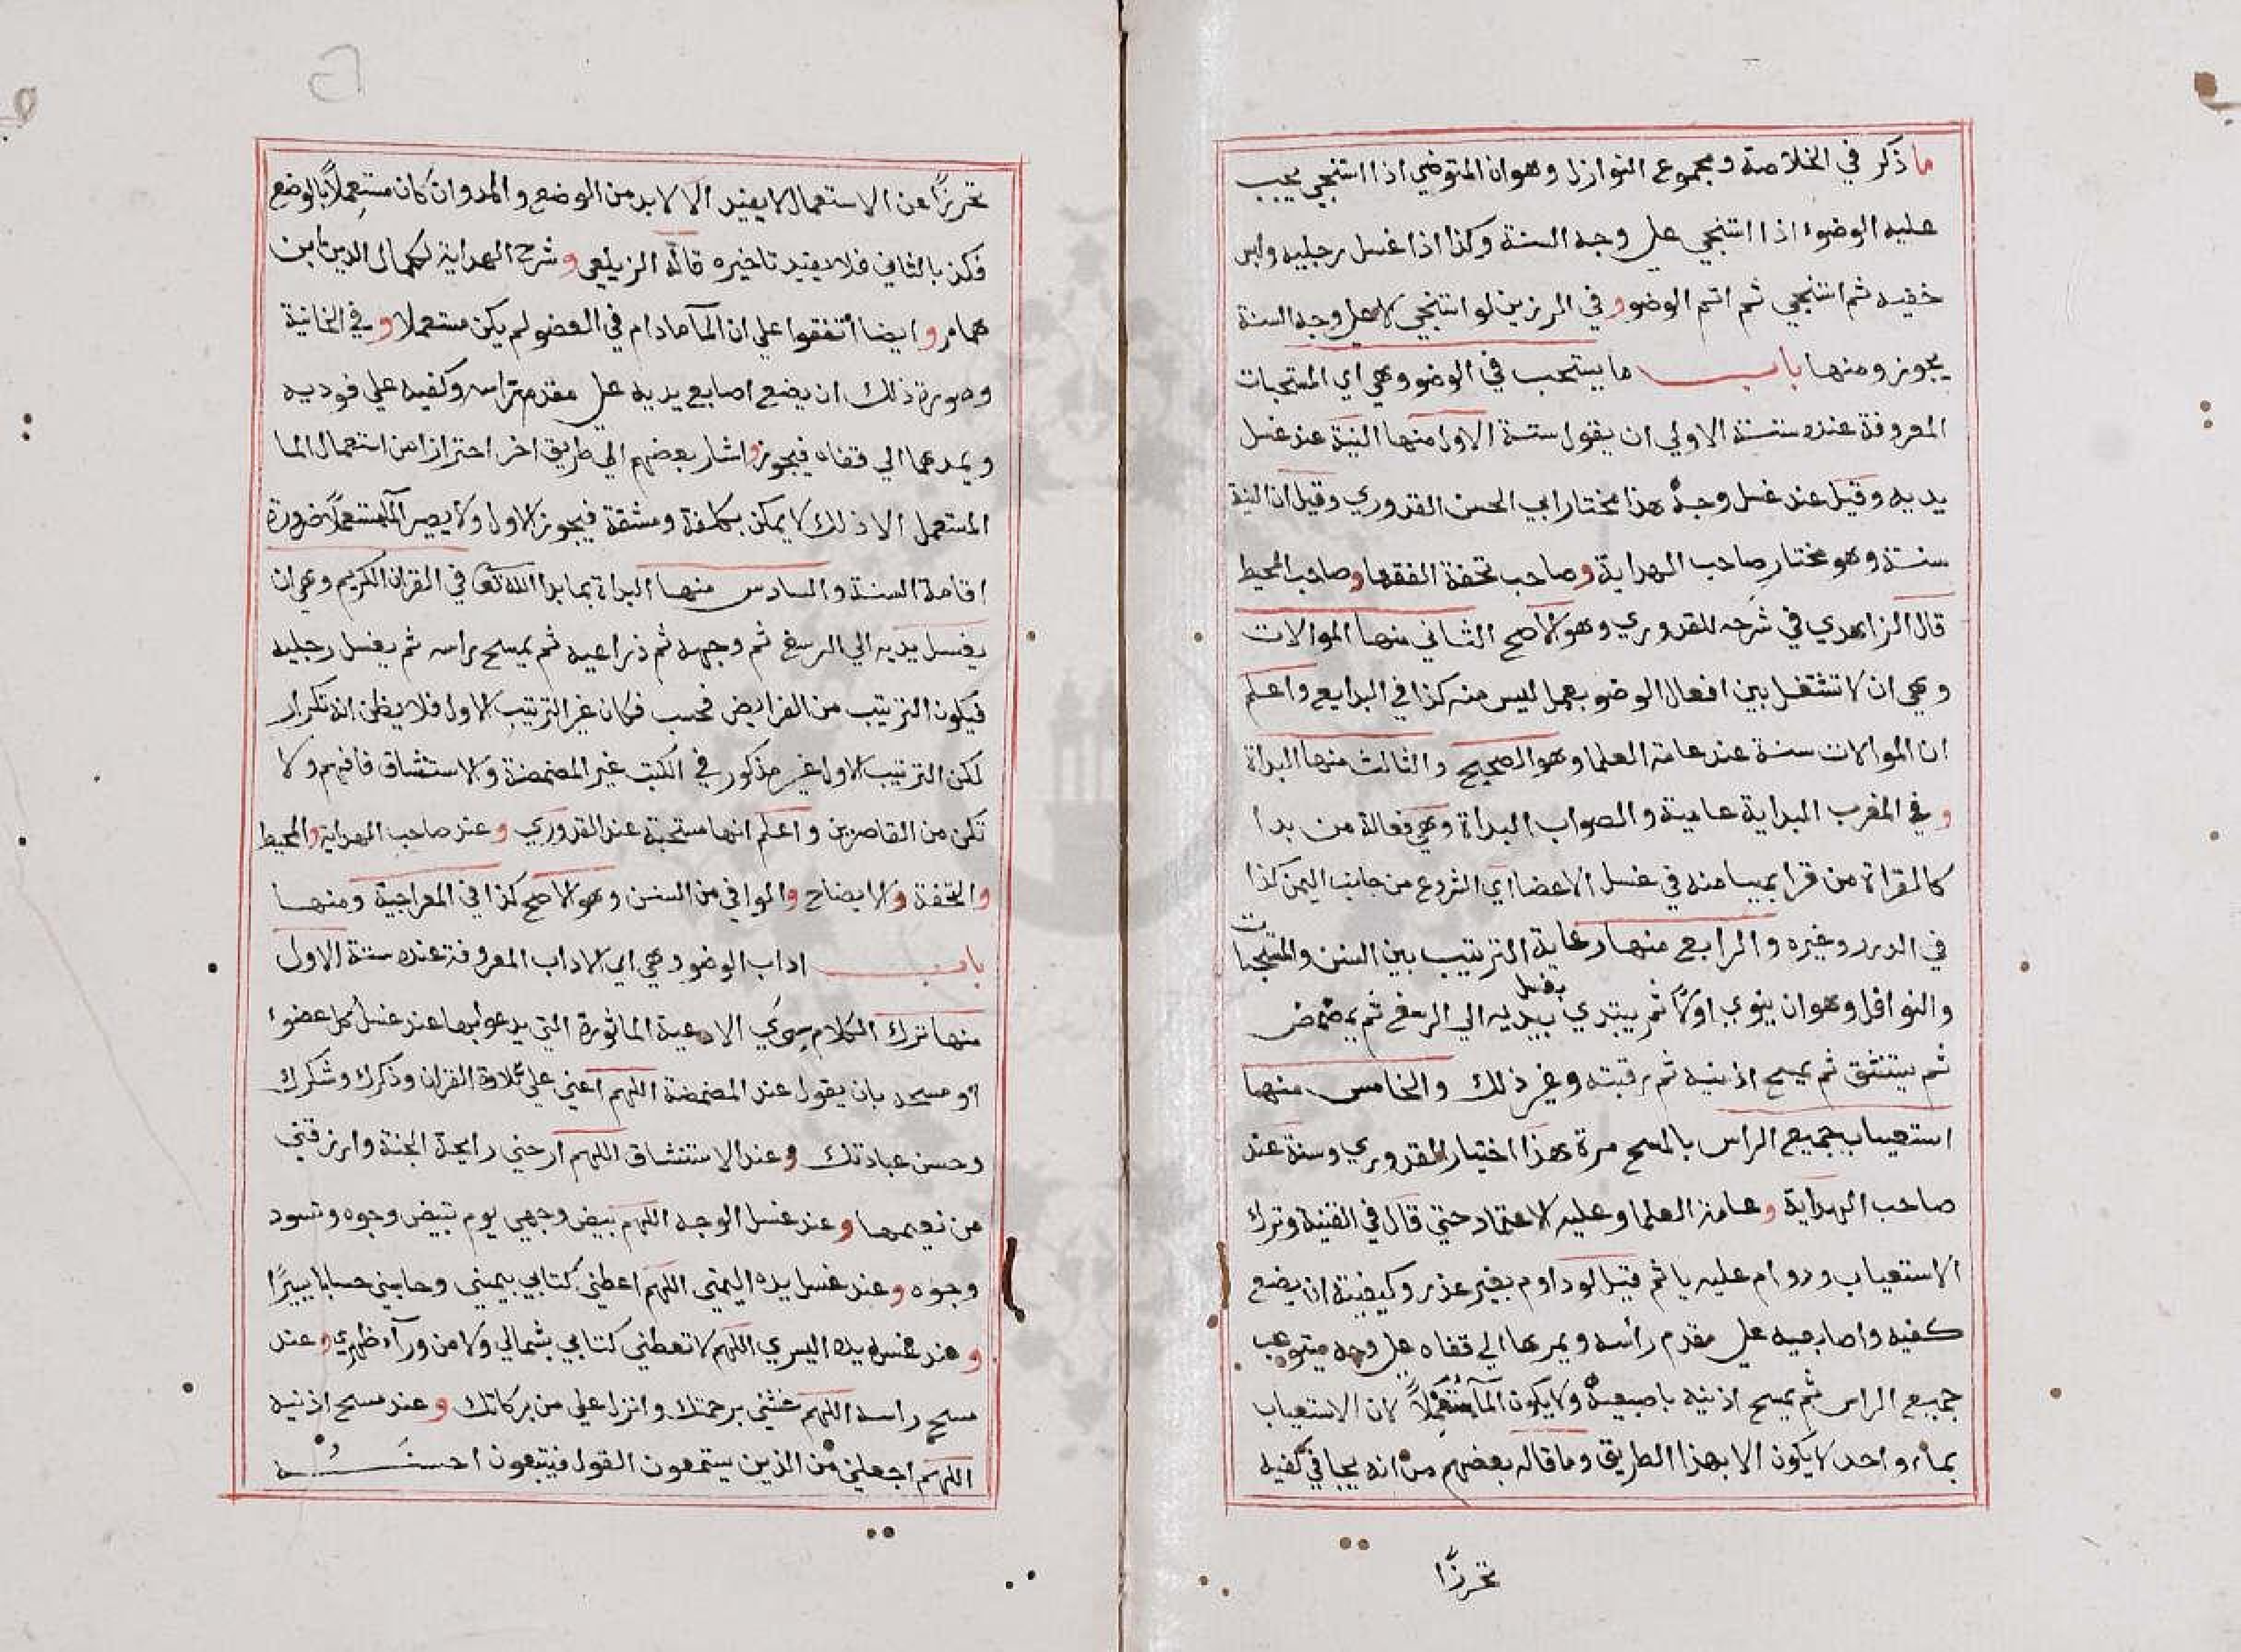 ما ذكر في الخلاصة ومجموع النوازل وهو ان المتوضي اذا استنجي يجب
عليه الوضوء اذا استنجي علي وجه السنة وكذا اذا غسل رجليه ولبس
خفيه ثم استنجي ثم اتم الوضو وفي لو استنجي لا علي وجه السنة
يجوز ومنها باب ما يستحب في الوضو وهي اي المستحبات
المعروفة عنده ستة الاولي ان يقول ستة الاول منها النية عند غسل
يديه وقيل عند غسل وجهه هذا مختار ابي الحسن القدوري وقيل ان النية
سنة وهو مختار صاحب الهداية وصاحب تحفة الفقها وصاحب المحيط
قال الزاهدي في شرحه للقدوري وهو الاصح الثاني منها الموالات
وهي ان لا تشتغل بين افعال الوضو بعمل ليس منه كذا في البدايع واعلم
ان الموالات سنة عند عامة العلما وهو الصحيح والثالث منها البداة
وفي المغرب البداية عامية والصواب البداة وهي فعالة من بدا
كالقراة من قرا بميامنه في غسل الاعضا اي الشروع من جانب اليمن كذا
في الدرر وغيره والرابع منها رعاية الترتيب بين السنن والمستحبات
والنوافل وهو ان ينوي اولاً ثم يبتدي بغسل بيديه الي الرسغ ثم يمضمض
ثم يستنشق ثم يمسح اذنيه ثم رقبته وغير ذلك والخامس منها
استعياب جميع الراس بالمسح مرة هذا اختيار القدوري وسنة عند
صاحب الهداية وعامة العلما وعليه الاعتماد حتي قال في القنية وترك
الاستعياب ودوام عليه ياثم قيل لو داوم بغير عذر وكيفيته ان يضع
كفيه واصابعيه علي مقدم رأسه ويمرها الي قفاه علي وجه يستوعب
جميع الراس ثم يمسح اذنيه باصبعيه ولا يكون المآ مستعملاً لان الاستعياب
بماء واحد لا يكون الا بهذا الطريق وما قاله بعضهم من انه يجافي كفيه
تحرزًا
تحرزًا عن الاستعمال لا يفيد الا لا بد من الوضع والمد وان كان مستعملاً بالوضع
فكذ بالثاني فلا يفيد تاخيره قاله الزيلعي وشرح الهداية لكمال الدين ابن
همام وايضا أتفقوا علي ان المآ ما دام في العضو لم يكن مستعملا وفي الخانية
وصورة ذلك ان يضع اصابع يديه علي مقدم راسه وكفيه علي فوديه
ويمدهما الي قفاه فيجوز واشار بعضهم الي طريق اخر احترازا من استعمال الما
المستعمل الا ذلك لا يمكن بكلفة ومشقة فيجوز الاول ولا يصير المآ مستعملاً ضرورة
اقامة السنة والسادس منها البداة بما بدا الله تع في القران الكريم وهي ان
يغسل يديه الي الرسغ ثم وجهه ثم ذراعيه ثم يمسح براسه ثم يغسل رجليه
فيكون الترتيب من الفرايض فحسب فكان غير الترتيب الاول فلا يظن انه تكرار
لكن الترتيب الاول غير مذكور في الكتب غير المضمضة والاستنشاق فافهم ولا
تكن من القاصرين واعلم انها مستحبة عند القدوري وعند صاحب الهداية والمحيط
والتحفة والايضاح والوافي من السنن وهو الاصح كذا في المعراجية ومنها
باب اداب الوضو وهي اي الاداب المعروفة عنده ستة الاول
منها ترك الكلام سوي الادعية الماثورة التي يدعو بها عند غسل كل عضوا
او مسحه بان يقول عند المضمضة اللهم اعني علي تلاوة القران وذكرك وشكرك
وحسن عبادتك وعند الاستنشاق اللهم ارحني رايحة الجنة وارزقني
من نعيمها وعند غسل الوجه اللهم بيض وجهي يوم تبيض وجوه وتسود
وجوه وعند غسل يده اليمني اللهم اعطني كتابي بيميني وحاسبني حسابا يسيرًا
وعند غسل يده اليسري اللهم لا تعطني كتابي بشمالي ولا من ورآء ظهري وعند
مسح راسه اللهم غشني برحمتك وانزل علي من بركاتك وعند مسح اذنيه
اللهم اجعلني من الذين يستمعون القول فيتبعون احسنه